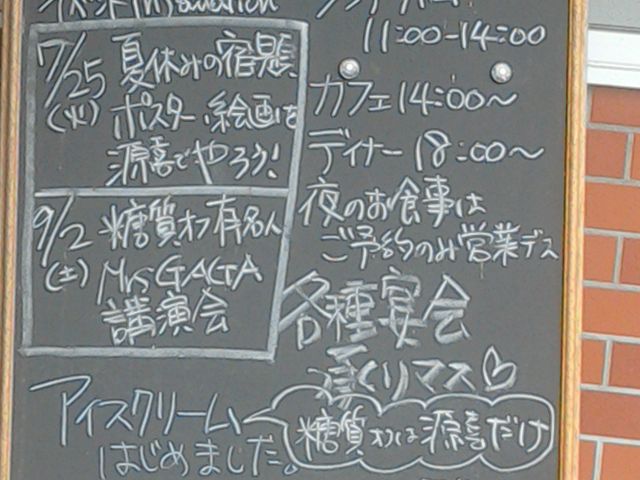 7/25 夏休みの宿題
(火) ポスター、絵画は
源喜でやろう!
9/2 糖質オフ有名人
(土) Mrs GAGA
講演会
11:00-14:00
カフェ 14:00〜
ディナー 18:00〜
夜のお食事は
ご予約のみ営業デス
各種宴会
くりマス
アイスクリーム
はじめました。
糖質オフは源喜だけ